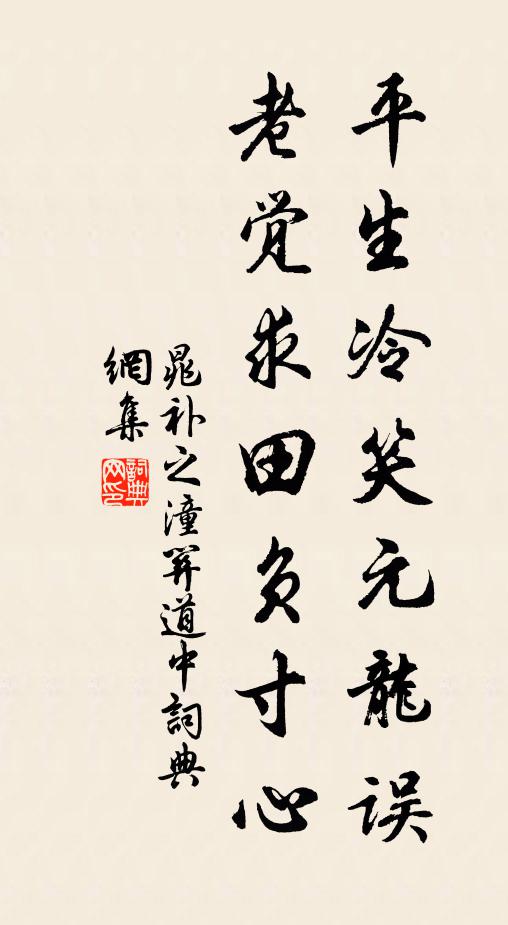 平生冷笑元龍误
老觉求田负寸心
晁补之潼関道中詞典
網集
詞典
网印